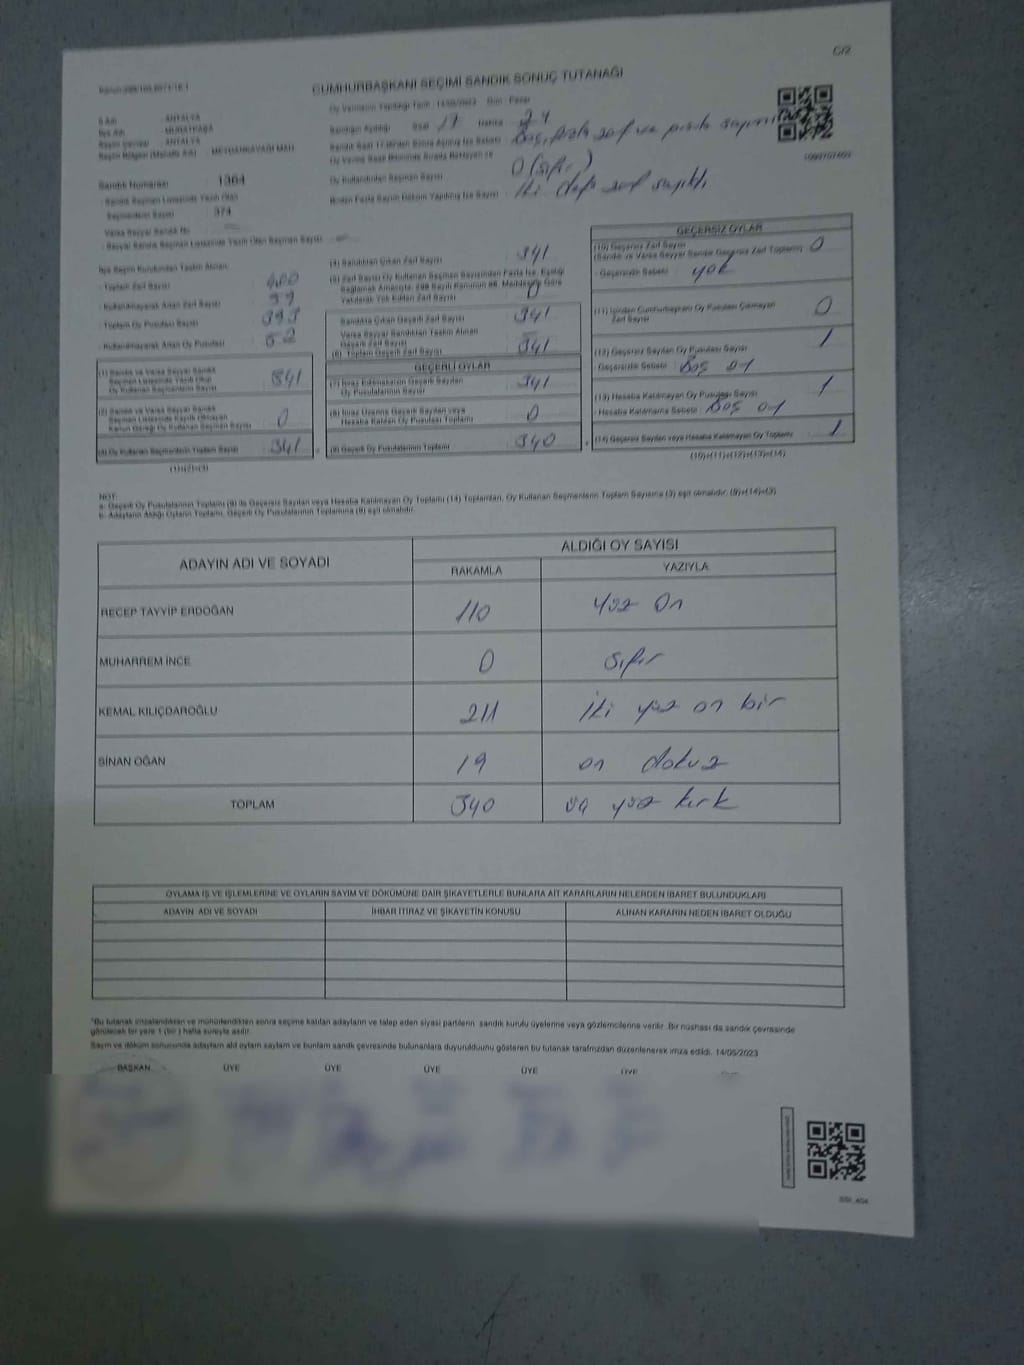 C/2
CUMHURBAŞKANI SEÇİMİ SANDIK SONUÇ TUTANAĞI
Oy Vermenin Yapıldığı Tarih : 14/05/2023 Gün : Pazar
İl Adı : ANTALYA
İlçe Adı : MURATPAŞA
Seçim Çevresi : ANTALYA
Seçim Bölgesi (Mahalle Adı) : MEYDANKAVAĞI MAH.
Sandığın Açıldığı Saat 17 Dakika 24
Sandık Saat 17:00'den Sonra Açılmış İse Sebebi : Boş, fazla zarf ve pusula sayımı
Oy Verme Saati Bitiminde Sırada Bekleyen ve
Oy Kullandırılan Seçmen Sayısı 0 (sıfır)
Birden Fazla Sayım Döküm Yapılmış İse Sayısı : iki defa zarf sayıldı
Sandık Numarası : 1364
- Sandık Seçmen Listesinde Yazılı Olan
Seçmenlerin Sayısı : 374
Varsa Seyyar Sandık No :
- Seyyar Sandık Seçmen Listesinde Yazılı Olan Seçmen Sayısı :
İlçe Seçim Kurulundan Teslim Alınan
- Toplam Zarf Sayısı : 400
- Kullanılmayarak Artan Zarf Sayısı : 59
- Toplam Oy Pusulası Sayısı : 393
- Kullanılmayarak Artan Oy Pusulası : 52
(1) Sandık ve Varsa Seyyar Sandık
Seçmen Listesinde Yazılı Olup
Oy Kullanan Seçmenlerin Sayısı : 341
(2) Sandık ve Varsa Seyyar Sandık
Seçmen Listesinde Kayıtlı Olmayan
Kanun Gereği Oy Kullanan Seçmen Sayısı : 0
(3) Oy Kullanan Seçmenlerin Toplam Sayısı : 341
(1)+(2)=(3)
(4) Sandıktan Çıkan Zarf Sayısı : 341
(5) Zarf Sayısı Oy Kullanan Seçmen Sayısından Fazla İse, Eşitliği
Sağlamak Amacıyla, 298 Sayılı Kanunun 98. Maddesine Göre
Yakılarak Yok Edilen Zarf Sayısı : 0
Sandıkta Çıkan Geçerli Zarf Sayısı : 341
Varsa Seyyar Sandıktan Teslim Alınan
Geçerli Zarf Sayısı :
(6) Toplam Geçerli Zarf Sayısı : 341
GEÇERLİ OYLAR
(7) İtiraz Edilmeksizin Geçerli Sayılan
Oy Pusulalarının Sayısı : 341
(8) İtiraz Üzerine Geçerli Sayılan veya
Hesaba Katılan Oy Pusulası Toplamı : 0
(9) Geçerli Oy Pusulalarının Toplamı : 340
GEÇERSİZ OYLAR
(10) Geçersiz Zarf Sayısı
(Sandık ve Varsa Seyyar Sandık Geçersiz Zarf Toplamı) : 0
- Geçersizlik Sebebi : yok
(11) İçinden Cumhurbaşkanı Oy Pusulası Çıkmayan
Zarf Sayısı : 0
(12) Geçersiz Sayılan Oy Pusulası Sayısı : 1
- Geçersizlik Sebebi : Boş oy
(13) Hesaba Katılmayan Oy Pusulası Sayısı : 1
- Hesaba Katılmama Sebebi : Boş oy
(14) Geçersiz Sayılan veya Hesaba Katılmayan Oy Toplamı : 1
(10)+(11)+(12)+(13)=(14)
NOT:
a- Geçerli Oy Pusulalarının Toplamı (9) ile Geçersiz Sayılan veya Hesaba Katılmayan Oy Toplamı (14) Toplamları, Oy Kullanan Seçmenlerin Toplam Sayısına (3) eşit olmalıdır. (9)+(14)=(3)
b- Adayların Aldığı Oyların Toplamı, Geçerli Oy Pusulalarının Toplamına (9) eşit olmalıdır.
ADAYIN ADI VE SOYADI
ALDIĞI OY SAYISI
RAKAMLA YAZIYLA
RECEP TAYYİP ERDOĞAN 110 yüz on
MUHARREM İNCE 0 sıfır
KEMAL KILIÇDAROĞLU 211 iki yüz on bir
SİNAN OĞAN 19 on dokuz
TOPLAM 340 üç yüz kırk
OYLAMA İŞ VE İŞLEMLERİNE VE OYLARIN SAYIM VE DÖKÜMÜNE DAİR ŞİKAYETLERLE BUNLARA AİT KARARLARIN NELERDEN İBARET BULUNDUKLARI
ADAYIN ADI VE SOYADI İHBAR İTİRAZ VE ŞİKAYETİN KONUSU ALINAN KARARIN NEDEN İBARET OLDUĞU
*Bu tutanak imzalandıktan ve mühürlendikten sonra seçime katılan adayların ve talep eden siyasi partilerin sandık kurulu üyelerine veya gözlemcilerine verilir. Bir nüshası da sandık çevresinde
görülecek bir yere 1 (bir) hafta süreyle asılır.
Sayım ve döküm sonucunda adayların aldığı oyların sayılarını ve bunların sandık çevresinde bulunanlara duyurulduğunu gösteren bu tutanak tarafımızdan düzenlenerek imza edildi. 14/05/2023
BAŞKAN ÜYE ÜYE ÜYE ÜYE ÜYE